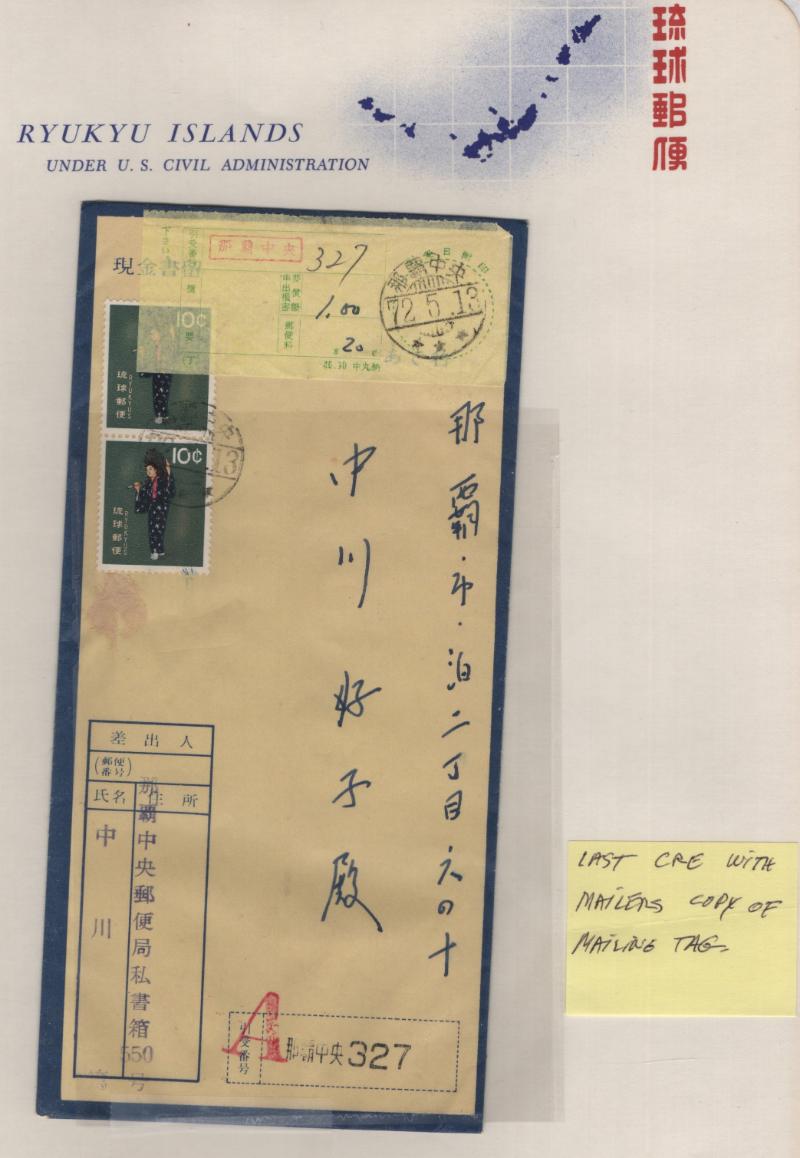 琉球郵便
RYUKYU ISLANDS
UNDER U. S. CIVIL ADMINISTRATION
現金書留
下さい
引受番号
那覇中央
327
要償額
申出損害
1.00
郵便料
20
那覇中央
72.5.13
10¢
琉球郵便
RYUKYUS
13
10¢
琉球郵便
RYUKYUS
那覇市泊二丁目六の十
中川好子殿
差出人
(郵便番号)
氏名
住所
那覇中央郵便局私書箱
550号
中川
A
引受番号
那覇中央327
LAST CRE WITH
MAILERS COPY OF
MAILING TAG.